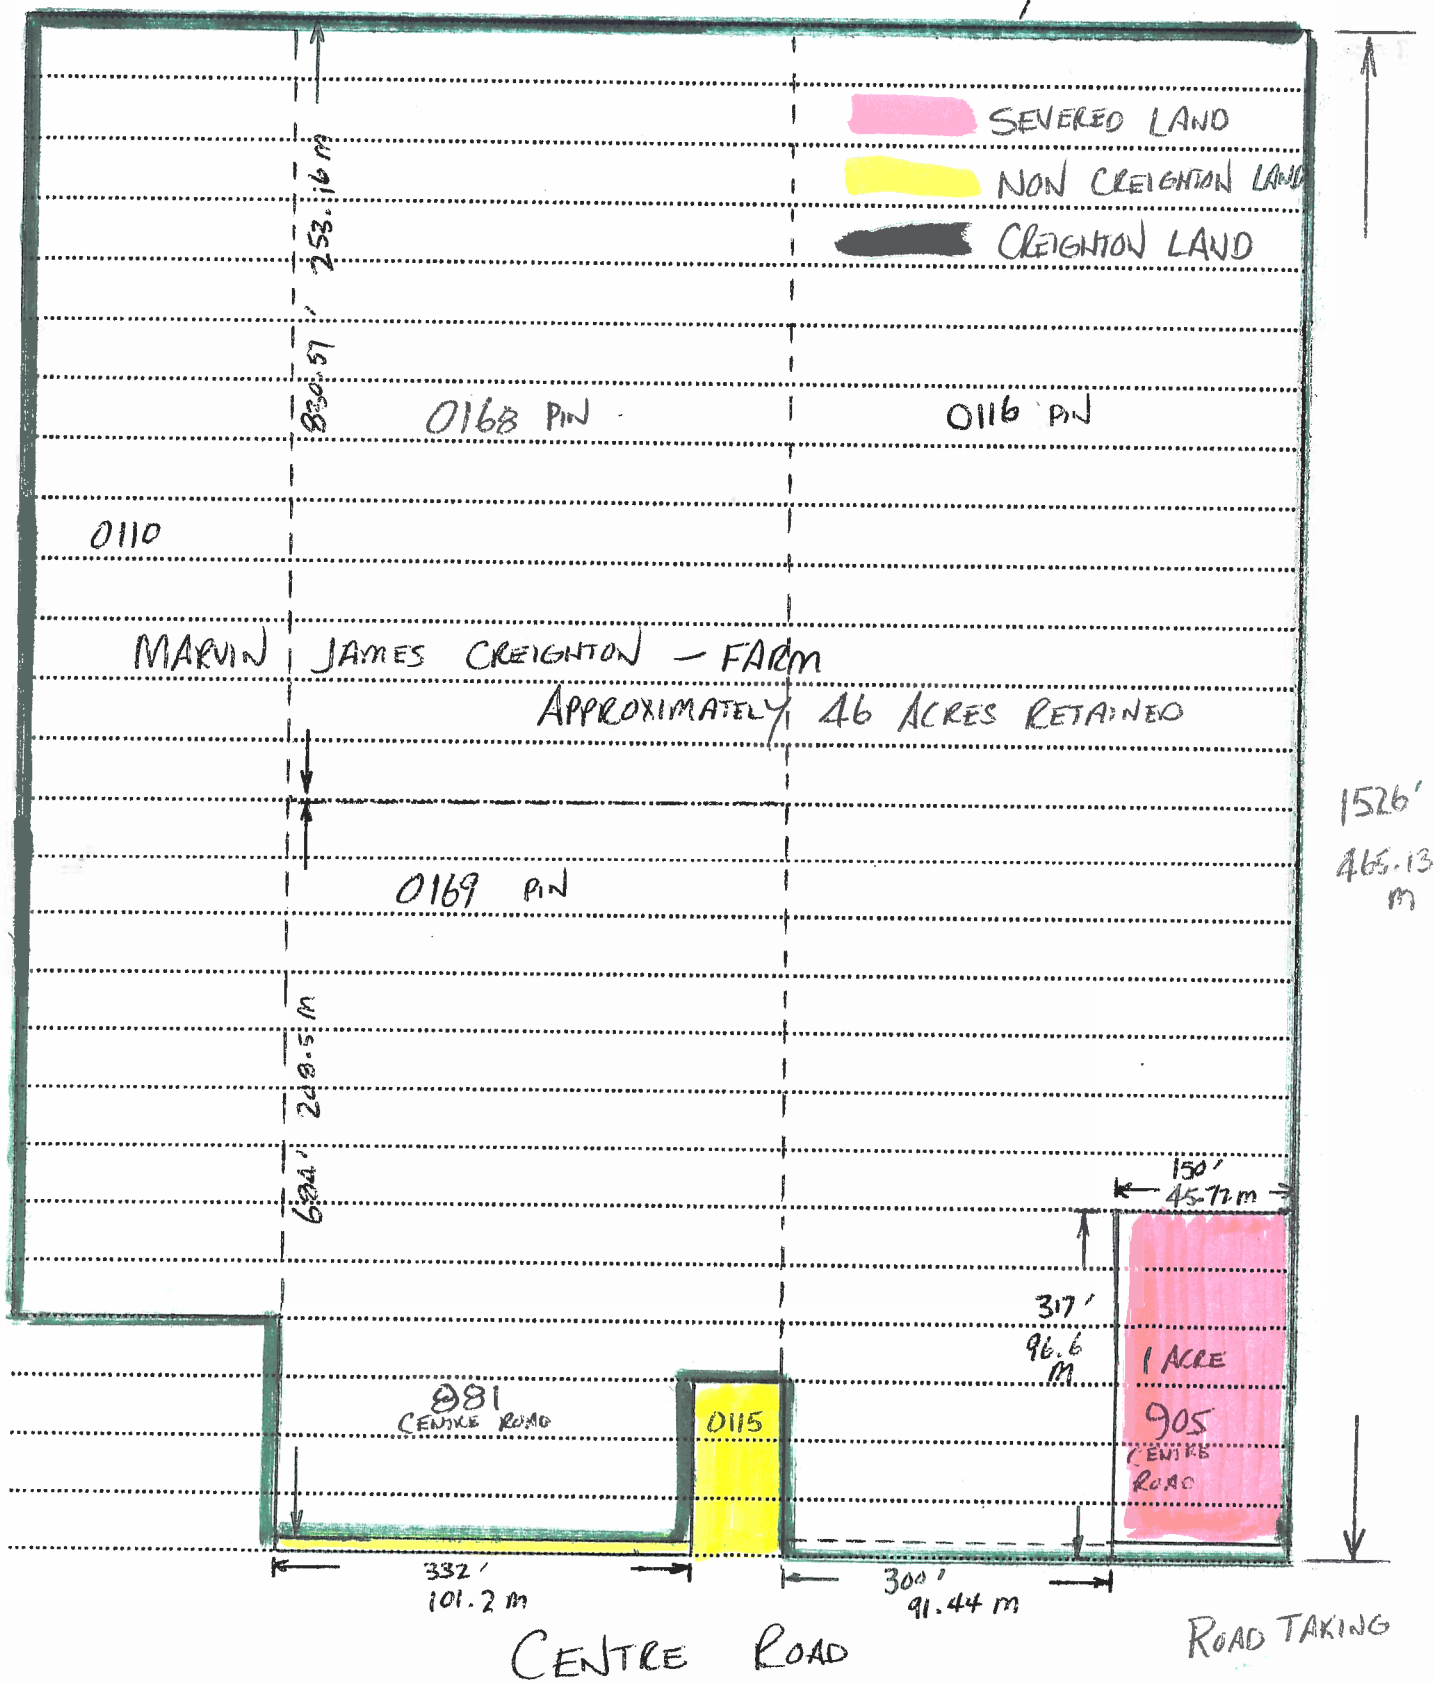 SEVERED LAND
NON CREIGHTON LAND
CREIGHTON LAND
253.16 m
830.57'
0168 PIN
0116 PIN
0110
MARVIN JAMES CREIGHTON - FARM
APPROXIMATELY 46 ACRES RETAINED
1526'
465.13
m
0169 PIN
208.5 m
684'
150'
45.72 m
317'
96.6
m
1 ACRE
905
CENTRE
ROAD
881
CENTRE ROAD
0115
332'
101.2 m
300'
91.44 m
ROAD TAKING
CENTRE ROAD